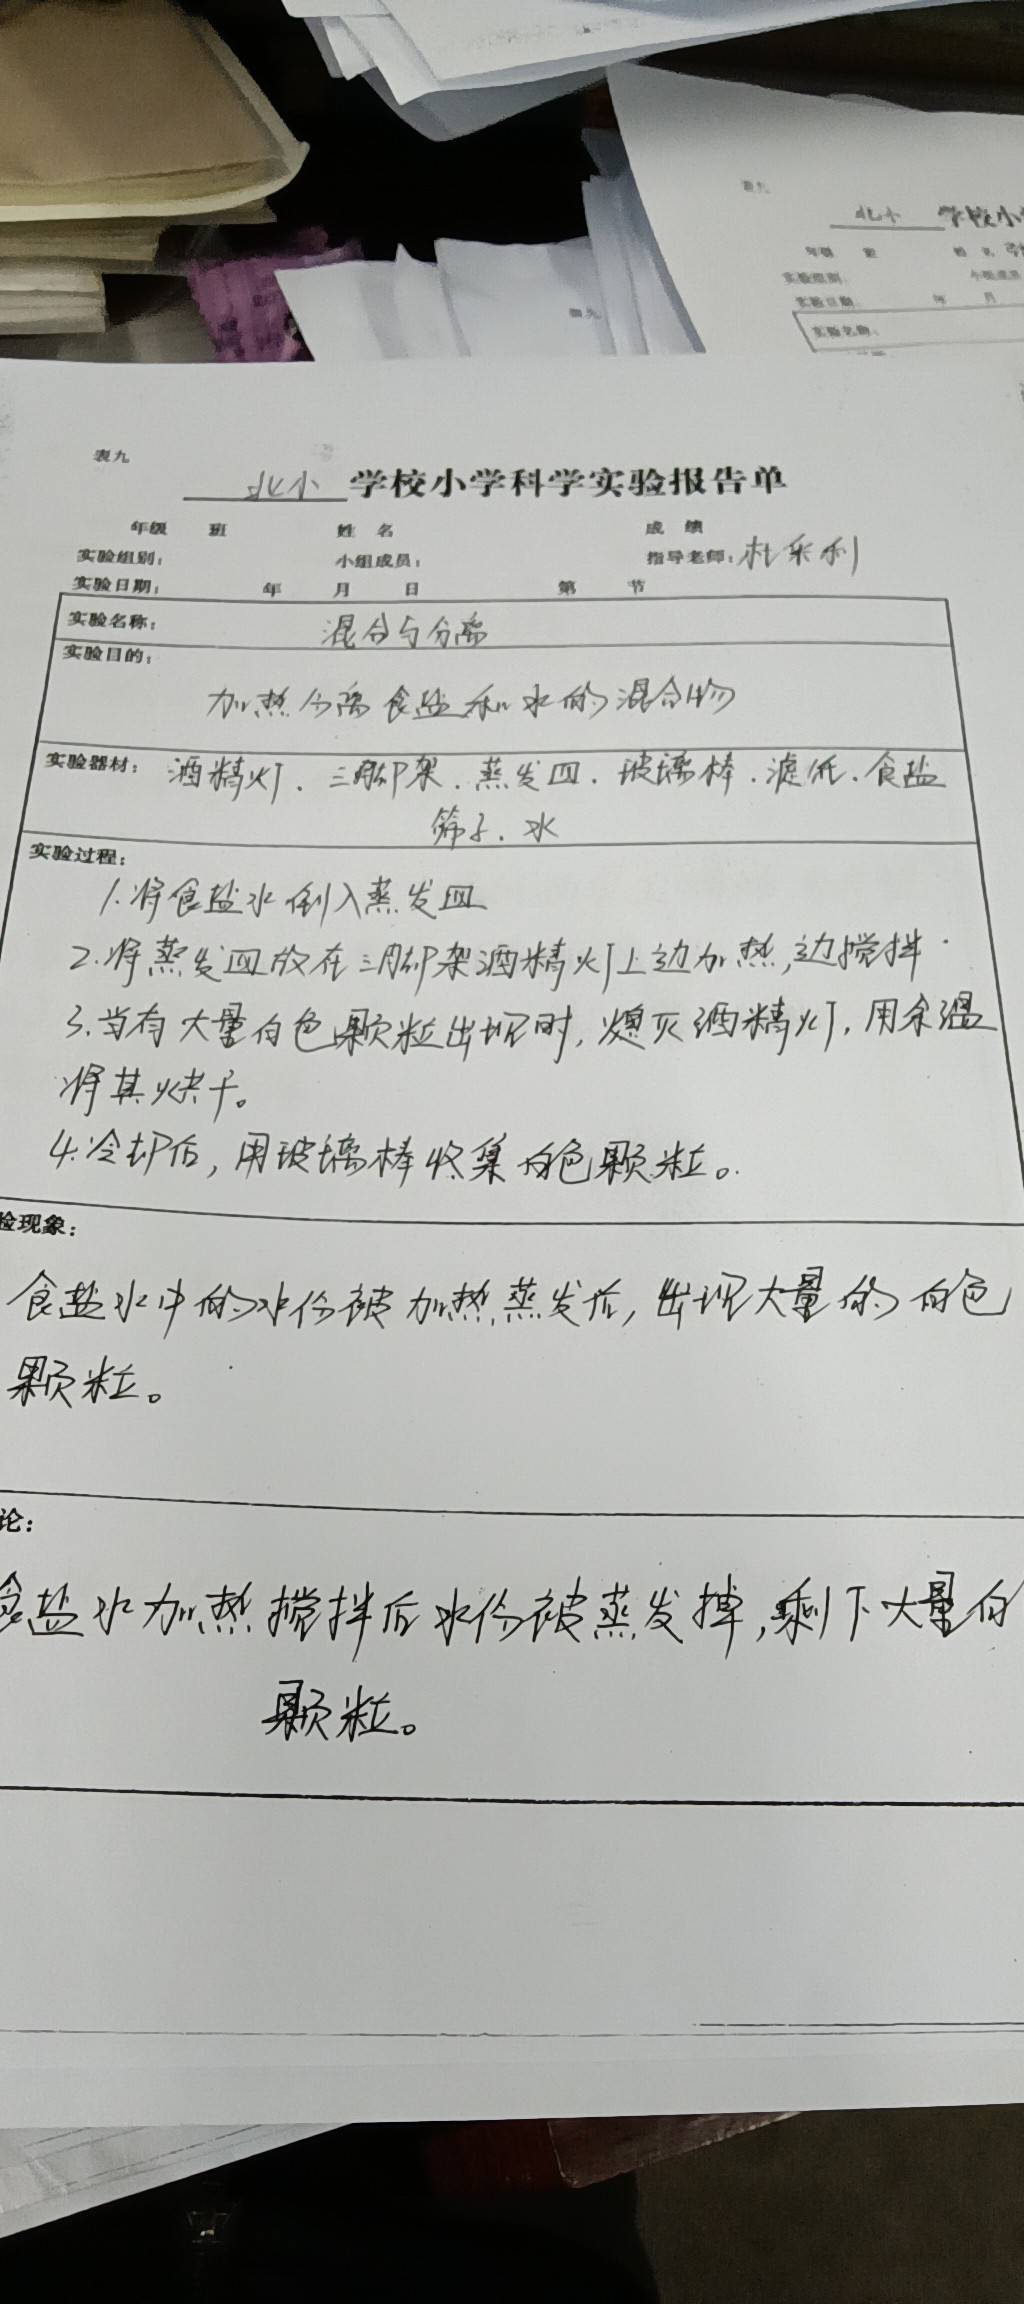 表九
北小 学校小
年级 班 姓 名
实验组别: 小组成员
实验日期: 年 月
实验名称:
表九
北小 学校小学科学实验报告单
年级 班 姓 名 成 绩
实验组别: 小组成员: 指导老师:
实验日期: 年 月 日 第 节
实验名称: 混合与分离
实验目的:
加热分离食盐和水的混合物
实验器材: 酒精灯、三脚架、蒸发皿、玻璃棒、滤纸、食盐
筛子、水
实验过程:
1.将食盐水倒入蒸发皿
2.将蒸发皿放在三脚架酒精灯上边加热,边搅拌
3.当有大量白色颗粒出现时,熄灭酒精灯,用余温
将其烘干。
4.冷却后,用玻璃棒收集白色颗粒。
验现象:
食盐水中的水份被加热蒸发后,出现大量的白色
颗粒。
论:
食盐水加热搅拌后水份被蒸发掉,剩下大量白
颗粒。